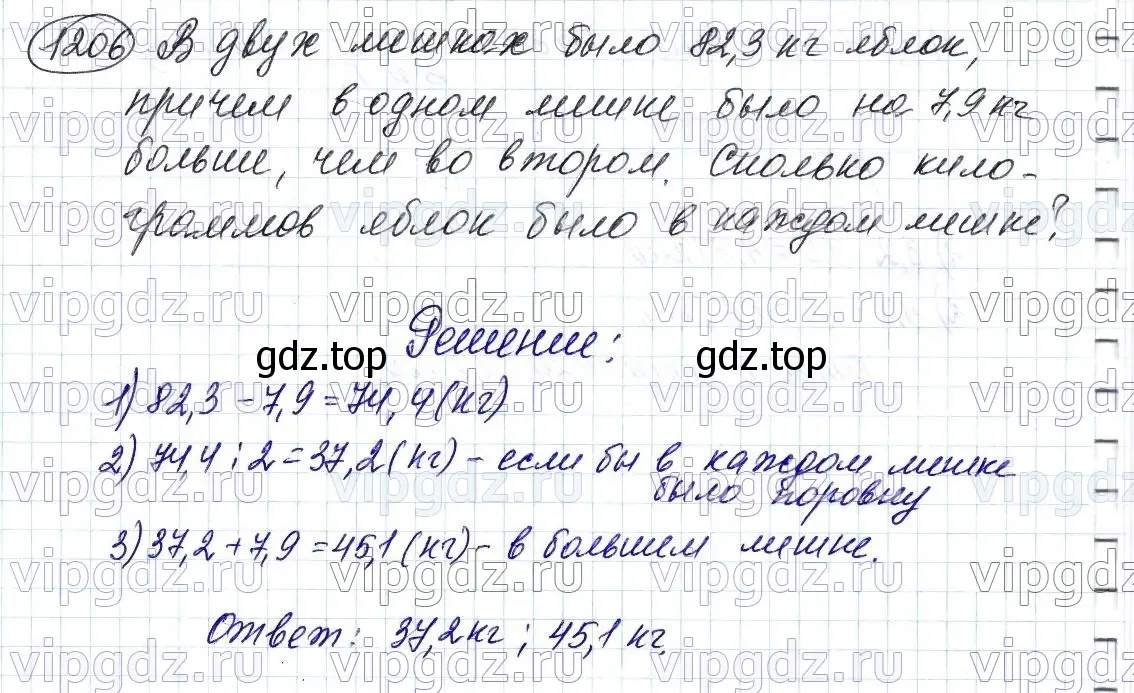 1206 В двух мешках было 82,3 кг яблок,
причем в одном мешке было на 7,9 кг
больше, чем во втором. Сколько кило-
граммов яблок было в каждом мешке?
Решение:
gdz.top gdz.top
1) 82,3 - 7,9 = 74,4 (кг)
2) 74,4 : 2 = 37,2 (кг) - если бы в каждом мешке
было поровну
3) 37,2 + 7,9 = 45,1 (кг) - в большем мешке.
Ответ: 37,2 кг ; 45,1 кг.
vipgdz.ru